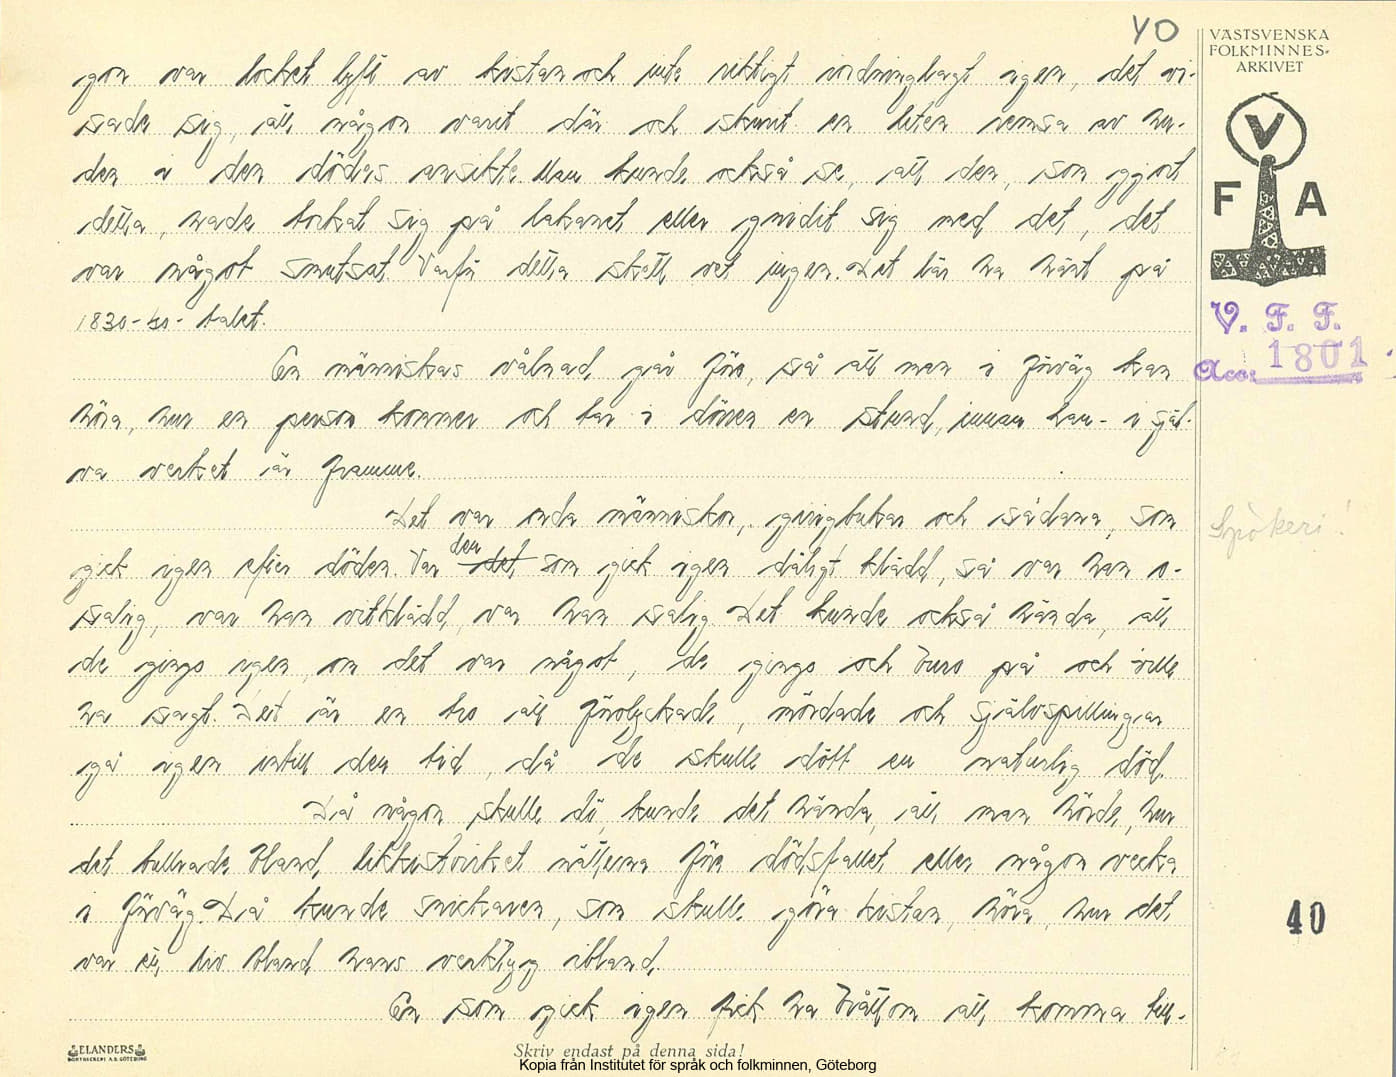 40
VÄSTSVENSKA
FOLKMINNES-
ARKIVET
V
F A
V. F. F.
Acc. 1801
gon var locket lyft av kistan och inte riktigt iordninglagt igen, det vi-
sade sig, att någon varit där och skurit en liten remsa av hu-
den i den dödes ansikte. Man kunde också se, att den, som gjort
detta, hade torkat sig på lakanet eller gnidit sig med det, det
var något smutsat. Varför detta skett vet ingen. Det lär ha hänt på
1830-40-talet.
En människas vålnad går före, så att man i förväg kan
höra, hur en person kommer och tar i dörren en stund, innan han - i själ-
va verket är framme.
Det var onda människor, girigbukar och sådana, som
Spökeri!
gick igen efter döden. Var den det som gick igen dåligt klädd, så var han o-
salig, var han vitklädd, var han salig. Det kunde också hända, att
de gingo igen, om det var något, de gingo och buro på och ville
ha sagt. Det är en tro att förolyckade, mördade och självspillingar
gå igen intill den tid, då de skulle dött en naturlig död.
Då någon skulle dö, kunde det hända, att man hörde, hur
det bullrade bland likkistvirket nätterna före dödsfallet eller någon vecka
i förväg. Då kunde snickaren, som skulle göra kistan, höra, hur det
40
var ett liv bland hans verktyg ibland.
En som gick igen fick ha bråttom att komma till-
ELANDERS
BOKTRYCKERI A.B. GÖTEBORG
Skriv endast på denna sida!
Kopia från Institutet för språk och folkminnen, Göteborg